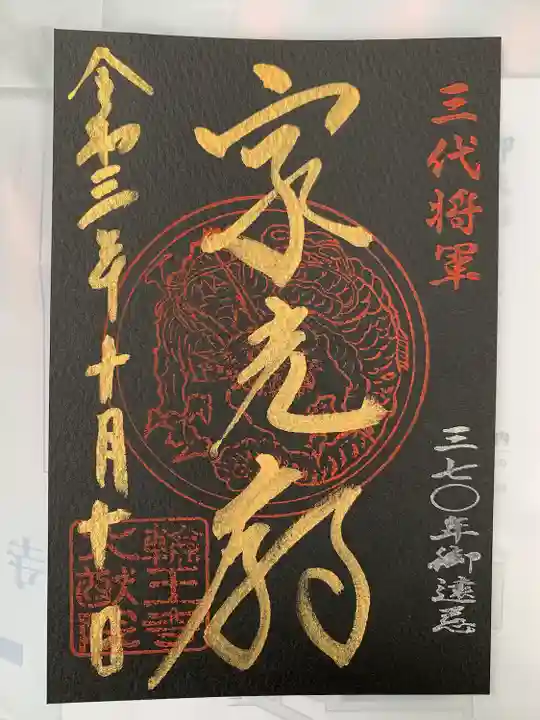 三代将軍
三七〇年御遠忌
家光廟
令和三年十月十日
輪王寺
大猷院